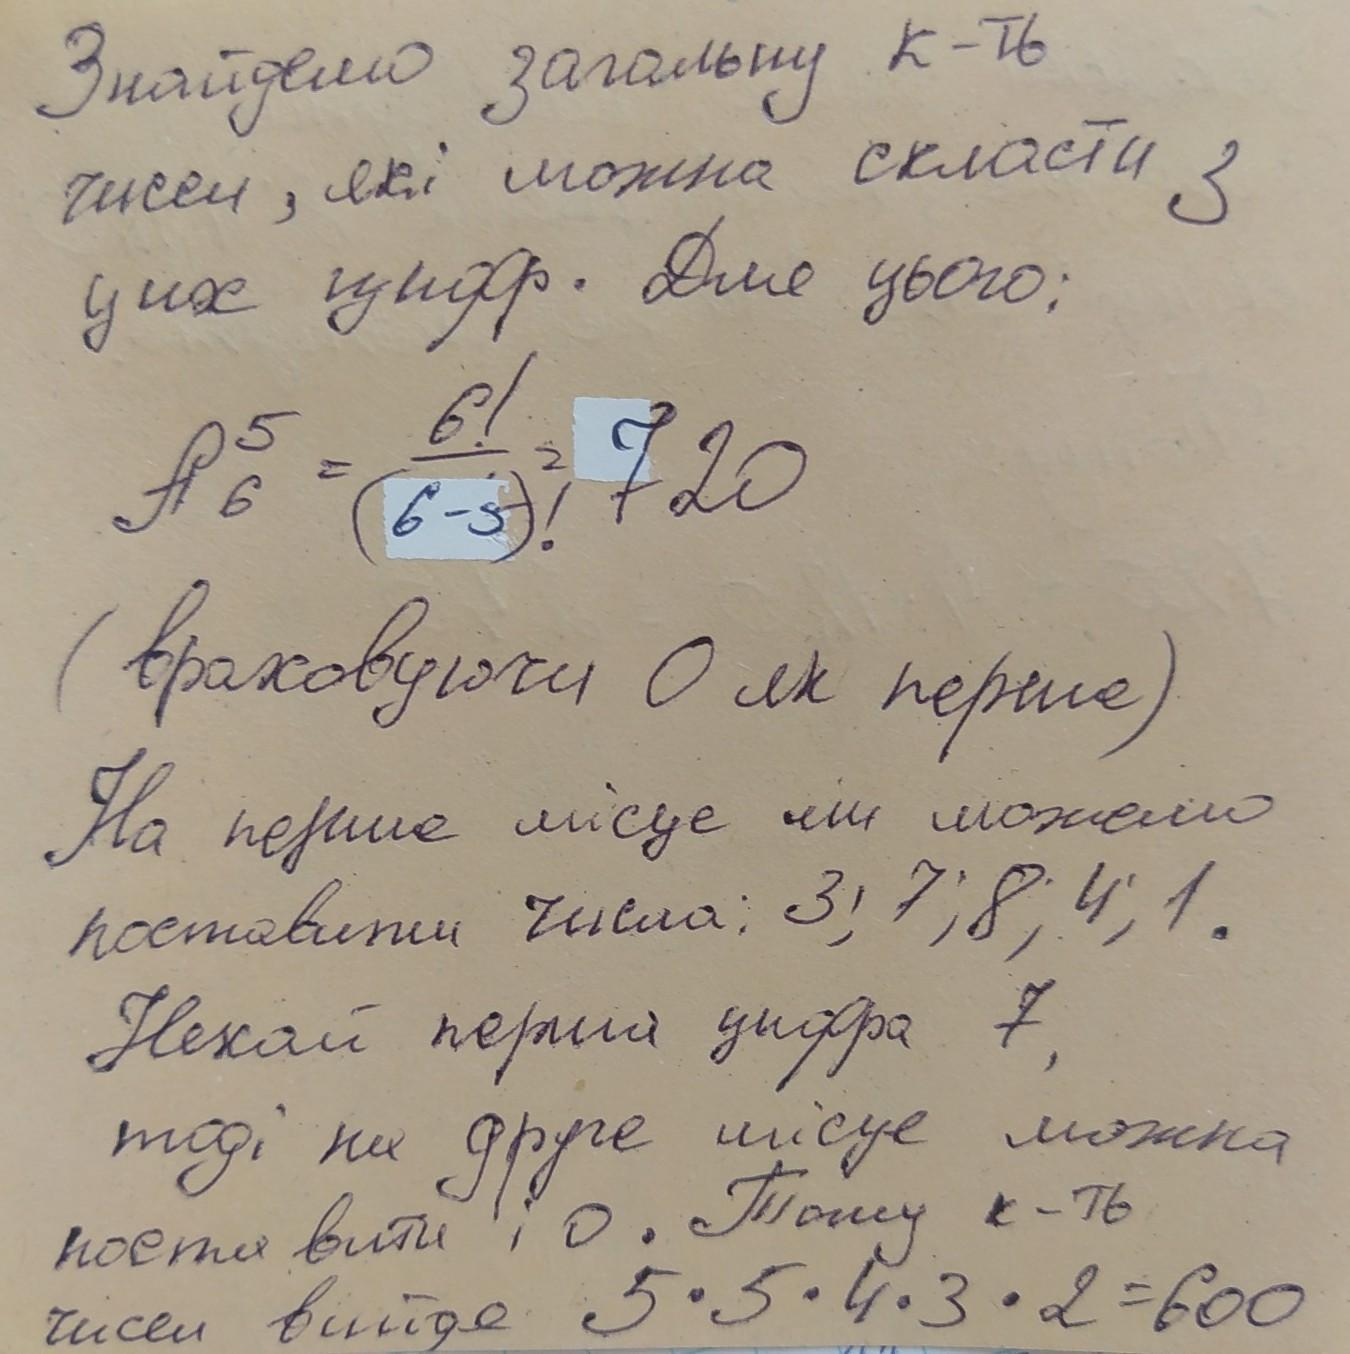 Знайдемо загальну к-ть
чисел, які можна скласти з
цих цифр. Для цього:
A⁵₆ = 6!/(6-5)! = 720
(враховуючи 0 як перше)
На перше місце ми можемо
поставити числа: 3; 7; 8; 4; 1.
Нехай перша цифра 7,
тоді на друге місце можна
поставити і 0. Тому к-ть
чисел вийде 5·5·4·3·2=600